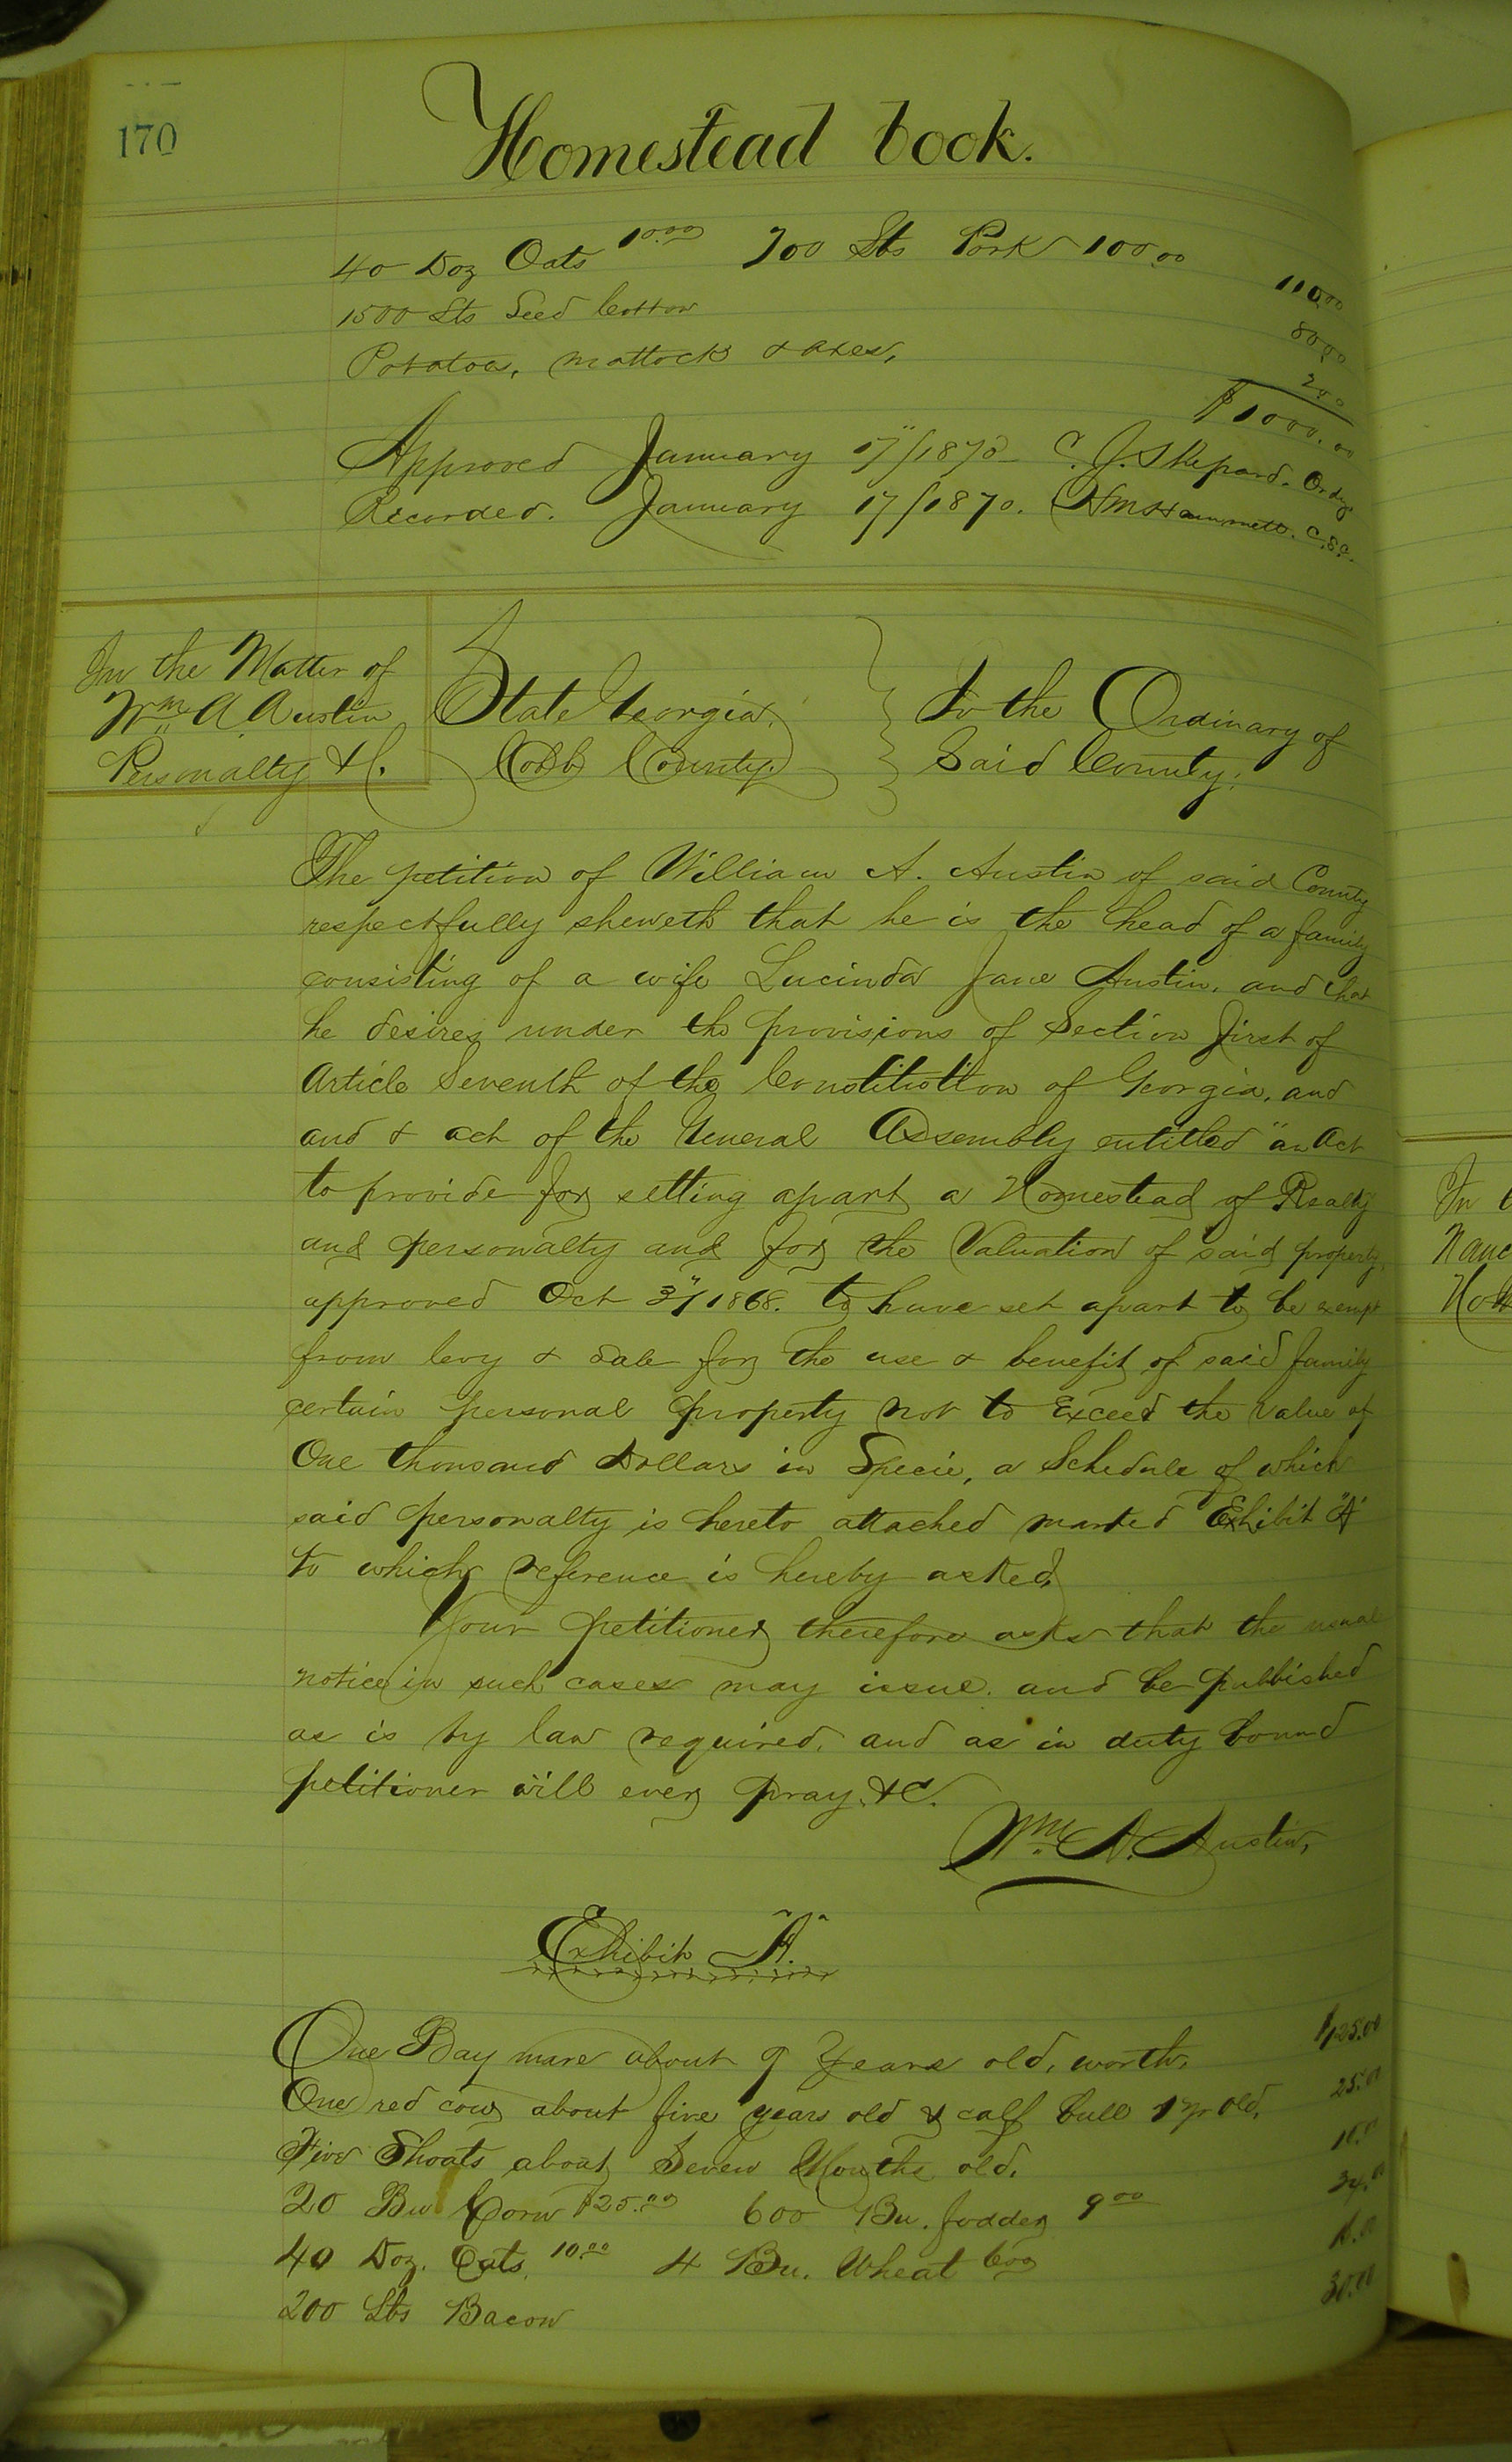 170
Homestead book.
40 Doz Oats 10.00 700 Lbs Pork 100.00 110.00
1500 Lbs Seed Cotton 80.00
Potatoes, mattock & axes,
$1000.00
Approved January 17"/1870 C. J. Shepard. Ordny
Recorded. January 17/1870. Hammett. C.S.C.
In the Matter of
Wm A. Austin
Personalty &C.
State Georgia,
Cobb County.
To the Ordinary of
Said County.
The petition of William A. Austin of said County
respectfully sheweth that he is the head of a family
consisting of a wife Lucinda Jane Austin, and that
he desires under the provisions of Section first of
Article Seventh of the Constitution of Georgia, and
and & act of the General Assembly entitled "an Act
to provide for setting apart a Homestead of Realty
and personalty and for the Valuation of said property,
approved Oct 3"/1868. to have set apart to be exempt
from levy & sale for the use & benefit of said family
certain personal property not to Exceed the Value of
One thousand Dollars in Specie, a Schedule of which
said personalty is hereto attached marked Exhibit "A"
to which reference is hereby asked,
Your petitioner therefore asks that the usual
notice in such cases may issue. and be published
as is by law required, and as in duty bound
petitioner will ever pray. &C.
Wm. A. Austin,
Exhibit "A".
One Bay mare about 9 Years old, worth, $125.00
One red cow about five years old & calf bull 1 yr old, 25.00
Five Shoats about Seven Months old. 10.00
20 Bu Corn $25.00 600 Bu. fodder 9 00 34.00
40 Doz. Oats, 10.00 4 Bu. Wheat 6 00
200 Lbs Bacon 30.00
In
Nanc